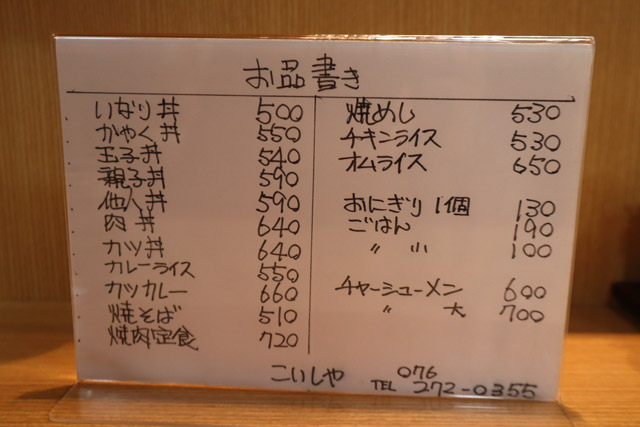 お品書き
いなり丼 500
かやく丼 550
玉子丼 540
親子丼 590
他人丼 590
肉丼 640
カツ丼 640
カレーライス 550
カツカレー 660
焼そば 510
焼肉定食 720
焼めし 530
チキンライス 530
オムライス 650
おにぎり 1個 130
ごはん 190
〃 小 100
チャーシューメン 600
〃 大 700
こいしや
076
TEL 272-0355